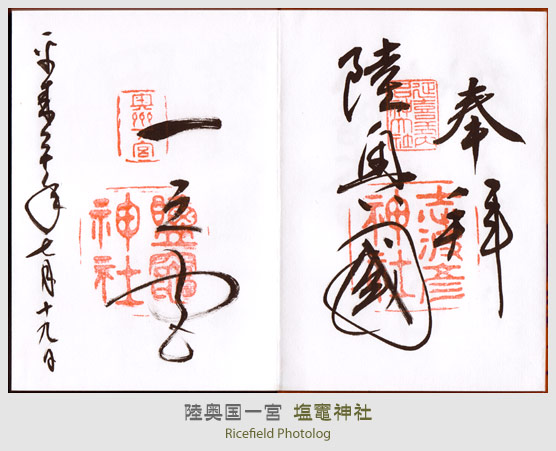 奉拝
陸奥國
志波彦神社
一之宮
奥州一宮
鹽竈神社
平成二十年七月十九日
陸奥国一宮 塩竈神社
Ricefield Photolog